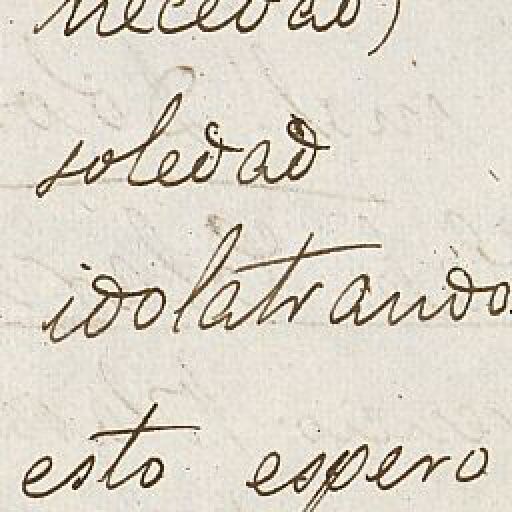 necedad,
soledad
idolatrando
esto espero